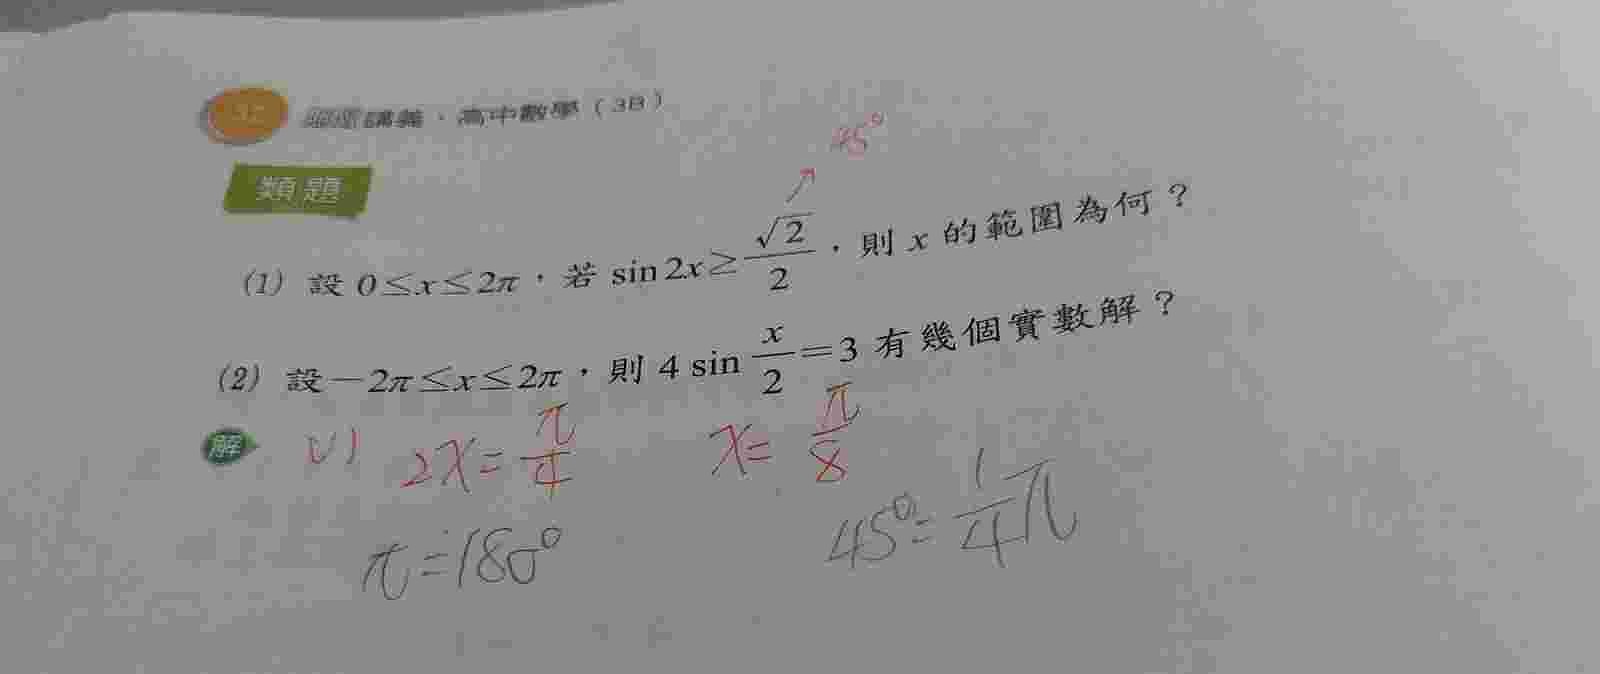 講義・高中數學（3B）
45°
類題
(1) 設 0≤x≤2π，若 sin2x≥√2/2，則 x 的範圍為何？
(2) 設－2π≤x≤2π，則 4 sin x/2=3 有幾個實數解？
解 (1) 2x=π/4 x=π/8
π=180° 45°=1/4π